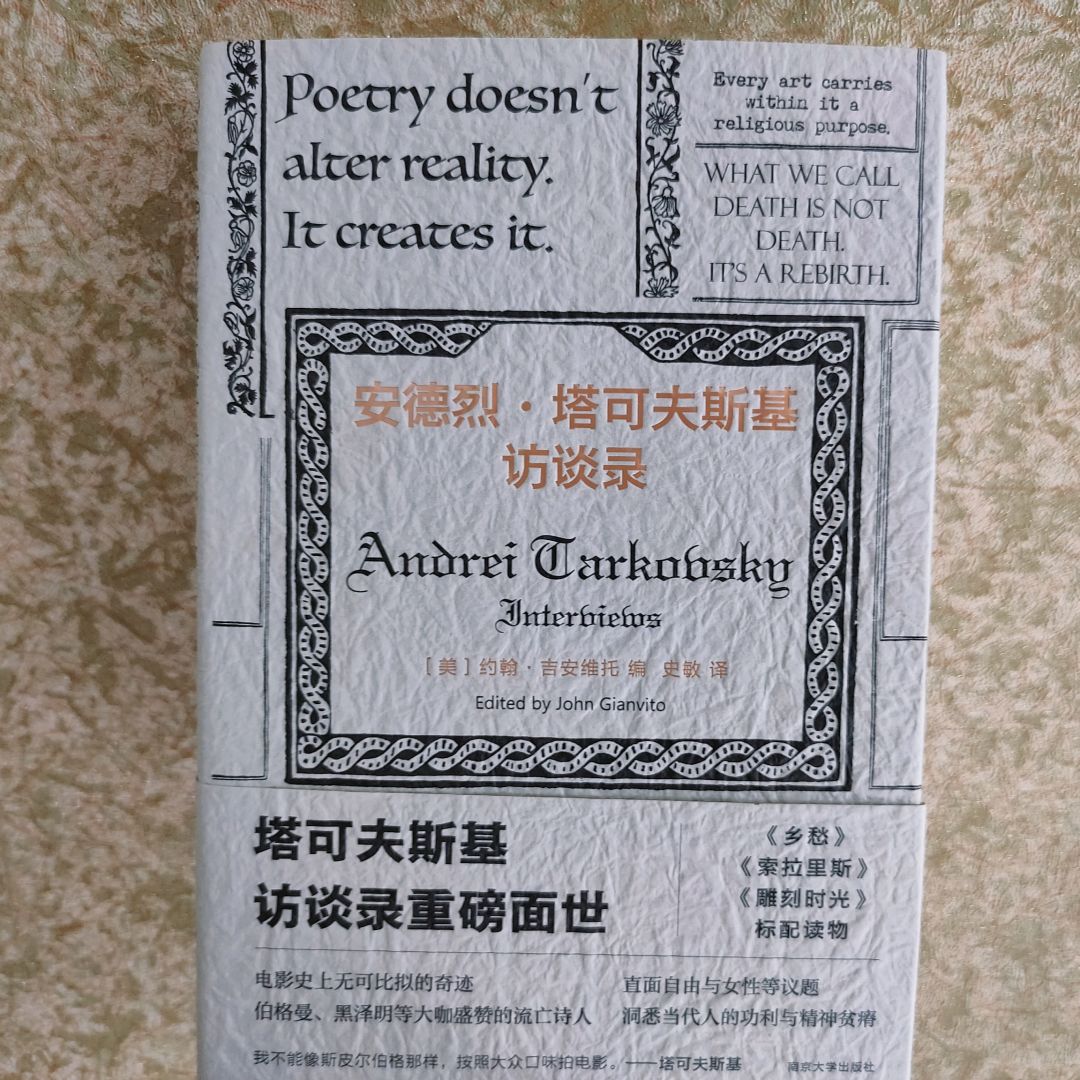 Poetry doesn't
alter reality.
It creates it.
Every art carries
within it a
religious purpose.
WHAT WE CALL
DEATH IS NOT
DEATH.
IT'S A REBIRTH.
安德烈·塔可夫斯基
访谈录
Andrei Tarkovsky
Interviews
［美］约翰·吉安维托 编 史敏 译
Edited by John Gianvito
塔可夫斯基
访谈录重磅面世
《乡愁》
《索拉里斯》
《雕刻时光》
标配读物
电影史上无可比拟的奇迹
伯格曼、黑泽明等大咖盛赞的流亡诗人
直面自由与女性等议题
洞悉当代人的功利与精神贫瘠
我不能像斯皮尔伯格那样，按照大众口味拍电影。——塔可夫斯基
南京大学出版社